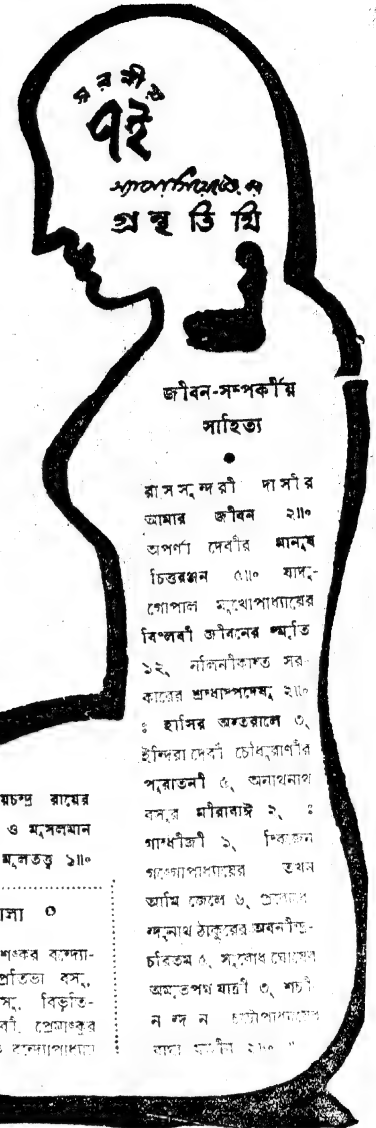 স্মরণীয়
৭ই
অ্যাসোসিয়েটেড-এর
গ্রন্থতিথি
জীবন-সম্পর্কীয়
সাহিত্য
রাসসুন্দরী দাসীর
আমার জীবন ২॥০
অপর্ণা দেবীর মানুষ
চিত্তরঞ্জন ৫॥০ যাদু-
গোপাল মুখোপাধ্যায়ের
বিপ্লবী জীবনের স্মৃতি
১২, নলিনীকান্ত সর-
কারের শ্রদ্ধাস্পদেষু ২॥০
ঃ হাসির অন্তরালে ৩,
ইন্দিরা দেবী চৌধুরাণীর
পুরাতনী ৫, অনাথনাথ
বসুর মীরাবাঈ ২, ঃ
গান্ধীজী ১, দ্বিজেন
গঙ্গোপাধ্যায়ের তখন
আমি জেলে ৬,
ন্দুনাথ ঠাকুরের অবনীন্দ্র-
চরিতম ৫, সুবোধ ঘোষের
অমৃতপথ যাত্রী ৩, শচী
নন্দন চট্টোপাধ্যায়ের
য়চন্দ্র রায়ের
ও মুসলমান
মূলতত্ত্ব ১॥০
শঙ্কর বন্দ্যো-
প্রতিভা বসু,
সু, বিভূতি-
বী, প্রেমাঙ্কুর
বন্দ্যোপাধ্যায়